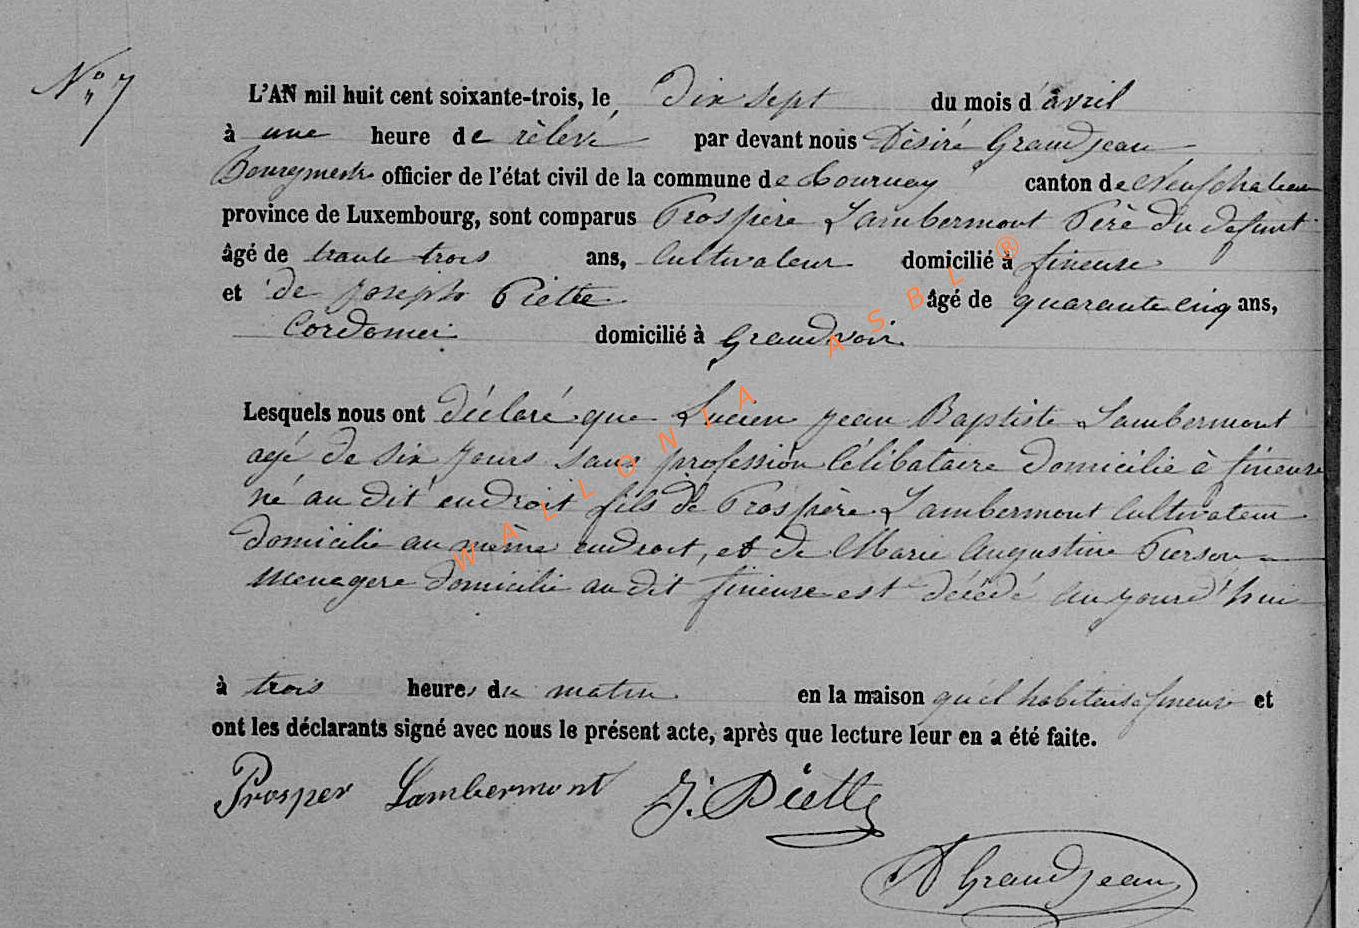 N° 7
L'AN mil huit cent soixante-trois, le dix sept du mois d'avril
à une heure de rèlevé par devant nous Dèsiré Grandjean
Bourgmestre officier de l'état civil de la commune de Tournay canton de Neufchateau
province de Luxembourg, sont comparus Prospère Lambermont Père du defunt
âgé de trante trois ans, Cultivateur domicilié à fineuse
et de Joseph Piette âgé de quarante cinq ans,
Cordonnier domicilié à Grandvoir
Lesquels nous ont déclaré que Lucien Jean Baptiste Lambermont
agé de six jours sans profession Célibataire domicilié à fineuse
né au dit endroit fils de Prospère Lambermont Cultivateur
domicilié au même endroit, et de Marie Augustine Pierson
menagere domicilié au dit fineuse est décédé aujourd'hui
à trois heures du matin en la maison qu'il habitait à fineuse et
ont les déclarants signé avec nous le présent acte, après que lecture leur en a été faite.
Prosper Lambermont J. Piette
D Grandjean
WALLONIA ASBL ®